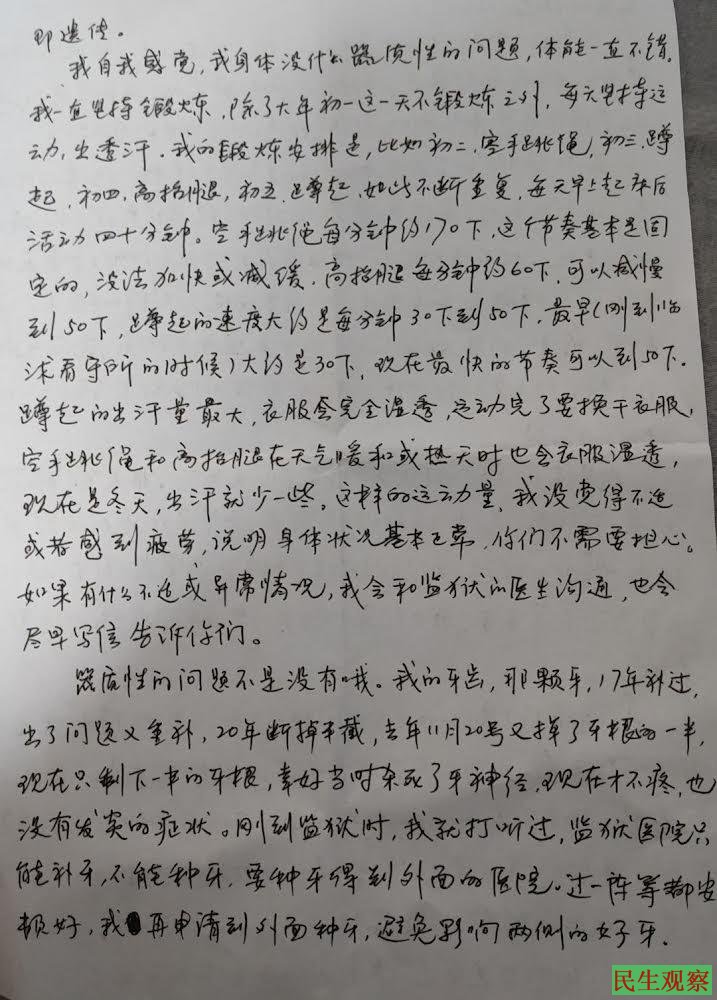 即遗传。
我自我感觉，我身体没什么器质性的问题，体能一直不错。
我一直坚持锻炼，除了大年初一这一天不锻炼之外，每天坚持运
动，出透汗。我的锻炼安排是，比如初二，空手跳绳，初三，蹲
起，初四，高抬腿，初五，蹲起，如此不断重复，每天早上起床后
活动四十分钟。空手跳绳每分钟约170下，这个节奏基本是固
定的，没法加快或减缓。高抬腿每分钟约60下，可以减慢
到50下，蹲起的速度大约是每分钟30下到50下，最早（刚到临
沭看守所的时候）大约是30下，现在最快的节奏可以到50下。
蹲起的出汗量最大，衣服会完全湿透，运动完了要换干衣服，
空手跳绳和高抬腿在天气暖和或热天时也会衣服湿透，
现在是冬天，出汗就少一些。这样的运动量，我没觉得不适
或者感到疲劳，说明身体状况基本正常，你们不需要担心。
如果有什么不适或异常情况，我会和监狱的医生沟通，也会
尽早写信告诉你们。
器质性的问题不是没有哦。我的牙齿，那颗牙，17年补过，
出了问题又重补，20年断掉半截，去年11月20号又掉了牙根的一半，
现在只剩下一半的牙根，幸好当时杀死了牙神经，现在才不疼，也
没有发炎的症状。刚到监狱时，我就打听过，监狱医院只
能补牙，不能种牙，要种牙得到外面的医院。过一阵等都安
顿好，我再申请到外面种牙，避免影响两侧的好牙。
民生观察